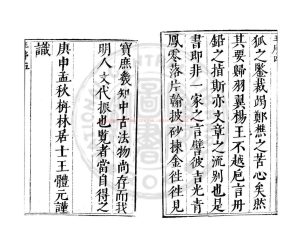 狐之鑒裁謁鄭樵之苦心矣然
其要歸羽翼楊王不越卮言册
鉛之指斯亦文章之流别也是
書即非一家之言譬彼吉光青
鳳零落片翰披沙揀金徃徃見
寶庶㡬知中古法物尚存而我
明人文代振也覽者當自得之
庚申孟秋栟林居士王體元謹
識